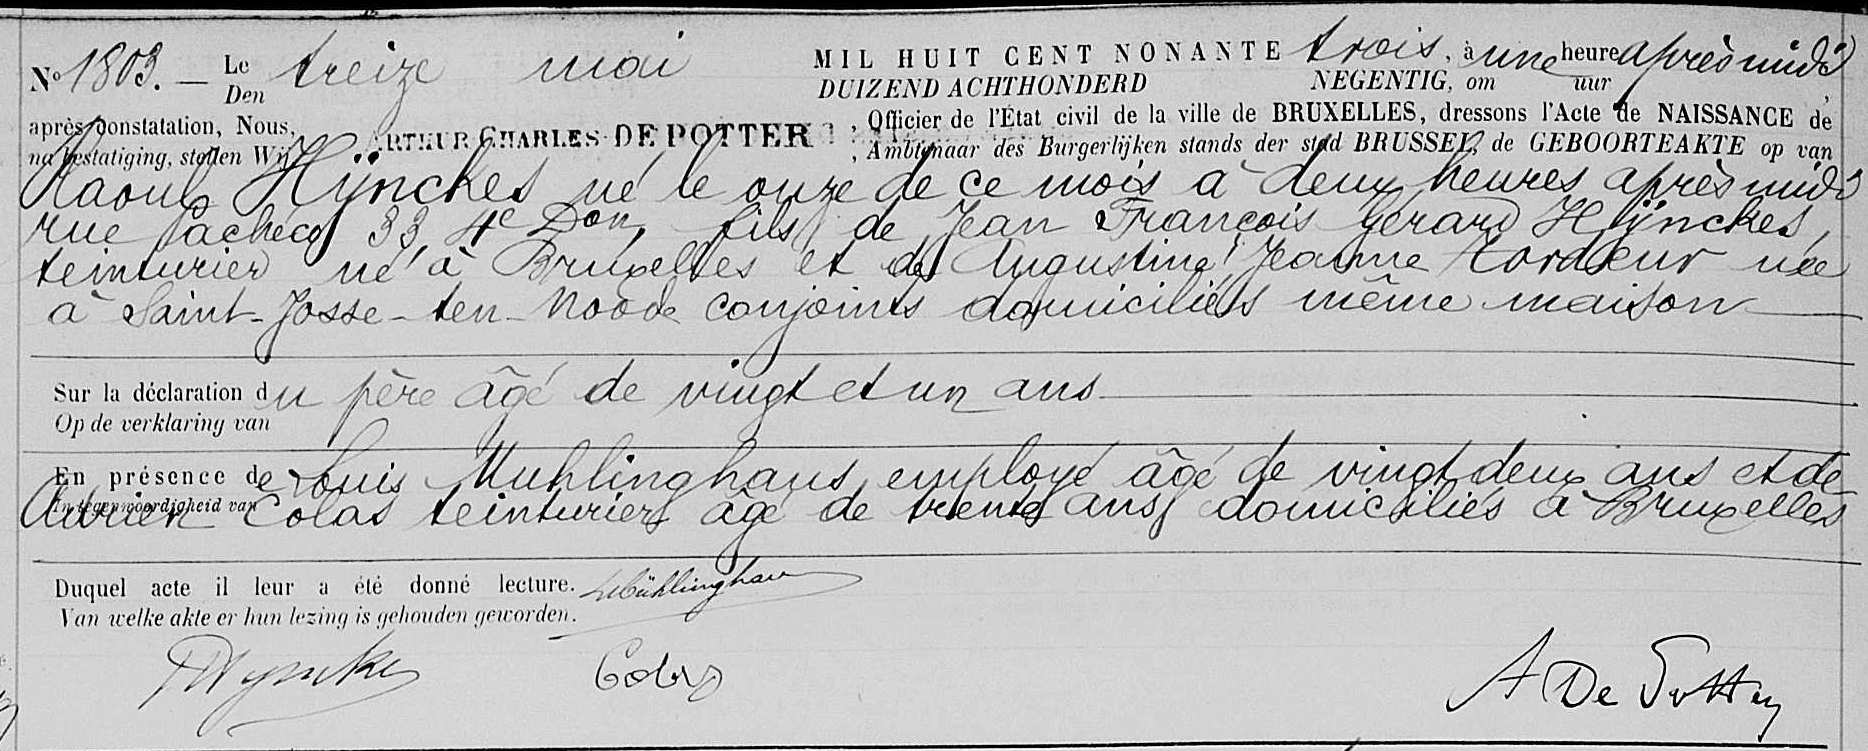 Nº 1803. — Le treize mai MIL HUIT CENT NONANTE trois, à une heure après midi
Den DUIZEND ACHTHONDERD NEGENTIG, om uur
après constatation, Nous, ARTHUR CHARLES DE POTTER, Officier de l'État civil de la ville de BRUXELLES, dressons l'Acte de NAISSANCE de
na bestatiging, stellen Wij, Ambtenaar des Burgerlijken stands der stad BRUSSEL, de GEBOORTEAKTE op van
Raoul Hÿnckes né le onze de ce mois à deux heures après midi
rue Pachéco 33, 4e Don, fils de Jean François Gérard Hÿnckes,
teinturier né à Bruxelles et de Augustine Jeanne Tordeur née
à Saint-Josse-ten-Noode conjoints domiciliés même maison
Sur la déclaration du père âgé de vingt et un ans
Op de verklaring van
En présence de Louis Muhlinghaus employé âgé de vingt deux ans et de
In tegenwoordigheid van
Adrien Colas teinturier âgé de trente ans domiciliés à Bruxelles
Duquel acte il leur a été donné lecture. Mühlinghaus
Van welke akte er hun lezing is gehouden geworden.
Hynckes Colas A De Potter